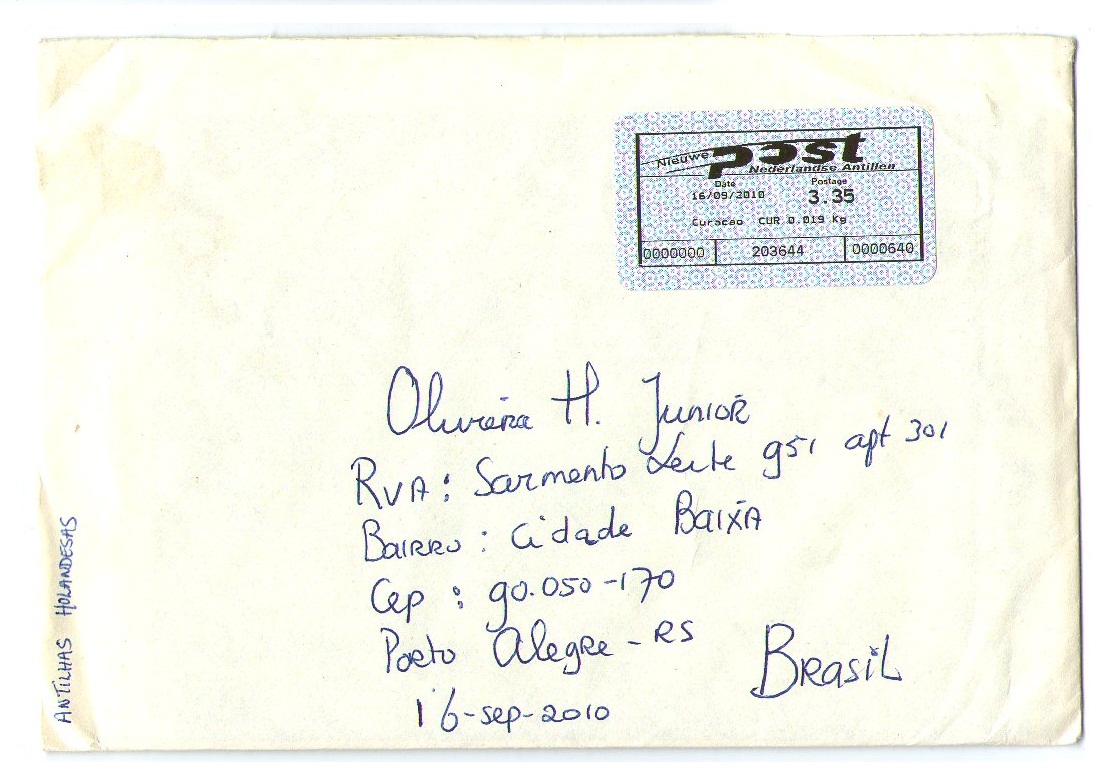 Nieuwe post
Nederlandse Antillen
Date Postage
16/09/2010 3.35
Curacao CUR 0.019 Kg
0000000 203644 0000640
Oliveira H. Junior
RUA: Sarmento Leite 951 apt 301
Bairro: Cidade Baixa
Cep: 90.050-170
Porto Alegre - RS
Brasil
16-sep-2010
ANTILHAS HOLANDESAS